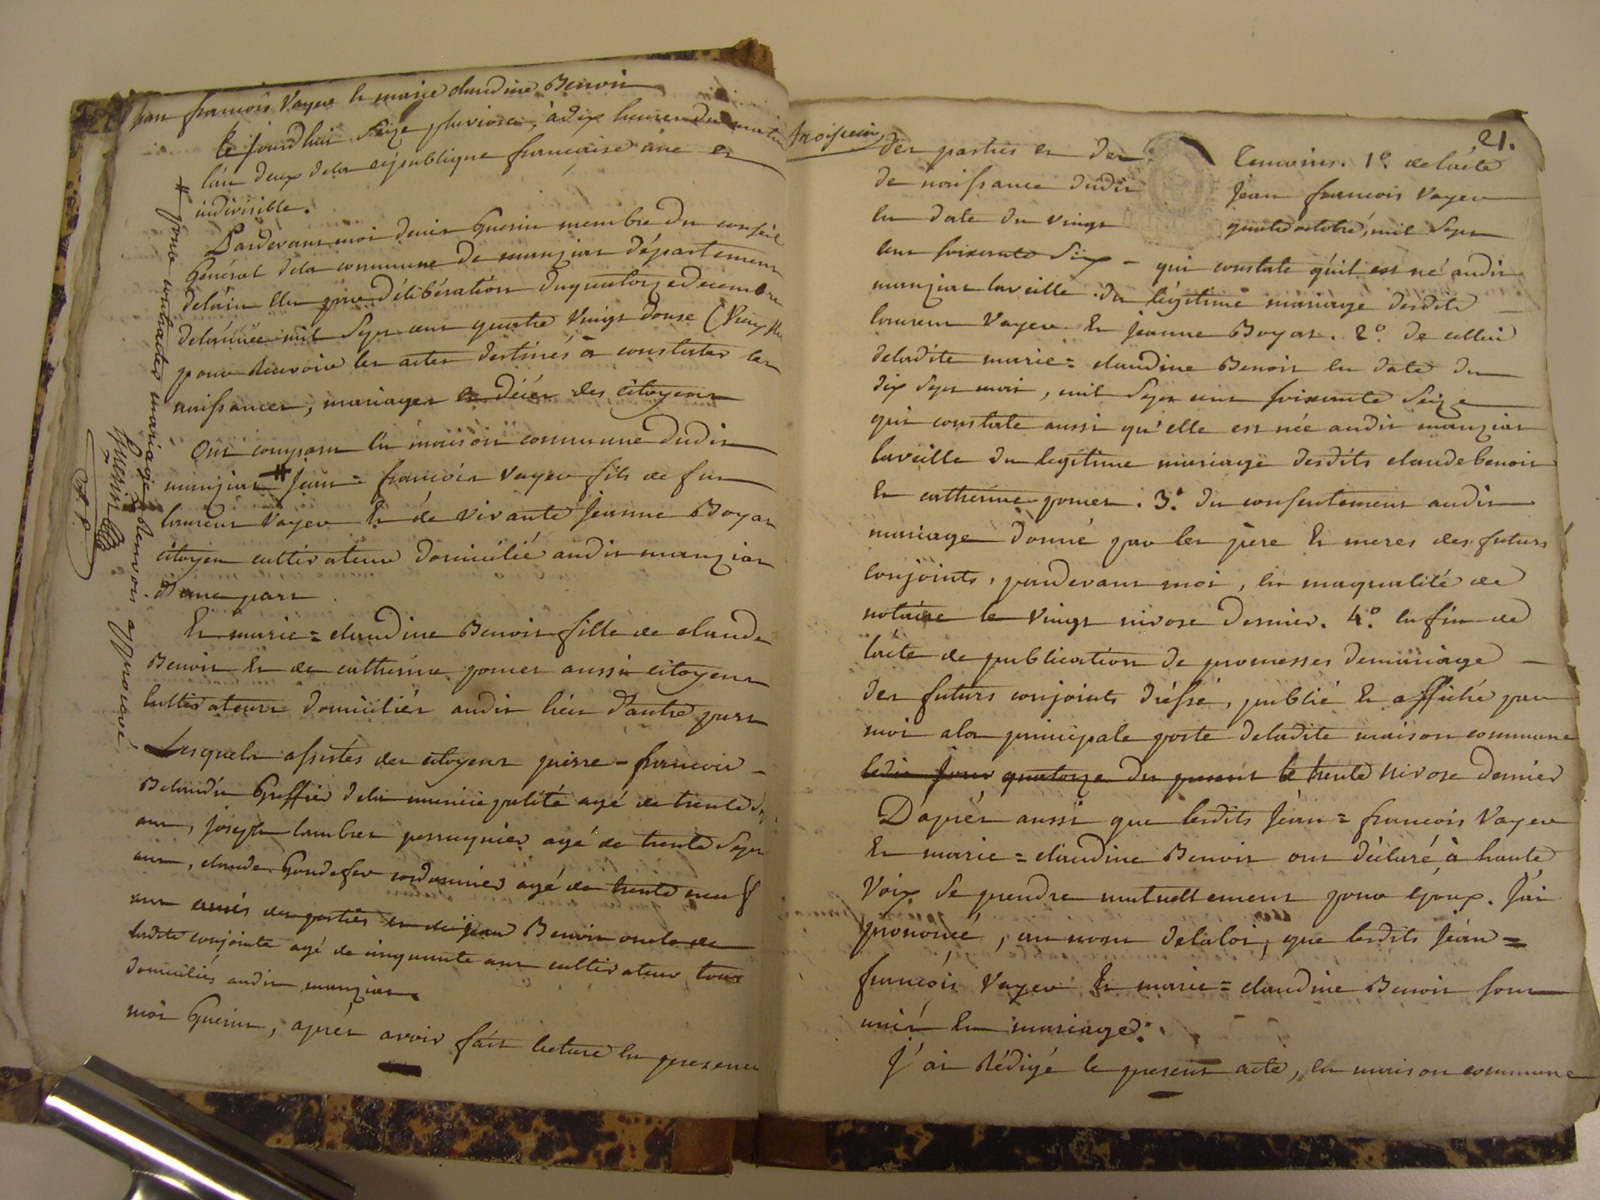 jean francois Vayeu et marie claudine Benoit
Ce jourd'hui seize pluviose, à dix heures du matin
l'an deux dela république francaise une et
indivisible.
Pardevant moi denis Guerin membre du conseil
Général dela commune de manziat département
delain élu par délibération du quatorze decembre
delannée mil sept cent quatre vingt douse (Vieux stile
pour recevoir les actes destinés à constater les
naissances, mariages et décès des citoyens
Ont comparu en maison commune dudit
manziat # Jean = francois Vayeu fils de feu
laurent Vayeu et de vivante Jeanne Boyat
citoyen cultivateur domicilié audit manziat
d'une part
Et marie = claudine Benoit fille de claude
Benoit et de catherine poncet aussi citoyens
cultivateurs domiciliés audit lieu d'autre part
Lesquels assistés des citoyens pierre = francois
Belaudin Greffier dela municipalité agé de trente
ans, joseph lambret perruquier agé de trente sept
ans, claude Gondefer cordonnier agé de trente neuf
ans amis des parties et de jean Benoit oncle de
ladite conjointe agé de cinquante ans cultivateur tous
domiciliés audit manziat
moi Guerin, après avoir fait lecture en presence
# pour contracter mariage Benoit approuvé
Guerin
troisieme
21.
des parties et des temoins. 1° de lacte
de naissance dudit Jean francois Vayeu
en date du vingt quatre octobre, mil sept
cent soixante six - qui constate qu'il est né audit
manziat laveille du légitime mariage desdits
laurent Vayeu et Jeanne Boyat. 2° de cellui
deladite marie = claudine Benoit en date du
dix sept mai, mil sept cent soixante seize
qui constate aussi qu'elle est née audit manziat
laveille du legitime mariage desdits claude benoit
et catherine poncet. 3° du consentement audit
mariage donné par les père et meres des futurs
conjoints, pardevant moi, en maqualité de
notaire le vingt nivose dernier. 4° enfin de
l'acte de publication de promesses demariage
des futurs conjoints dréssé, publié et affiché par
moi ala principale porte deladite maison commune
ledit jour quatorze du present le trente nivose dernier
D'après aussi que lesdits Jean = francois Vayeu
et marie = claudine Benoit ont déclaré à haute
voix se prendre mutuellement pour époux. J'ai
prononcé, au nom delaloi, que lesdits Jean =
francois Vayeu et marie = claudine Benoit sont
unis en mariage.
J'ai rédigé le present acte, en maison commune